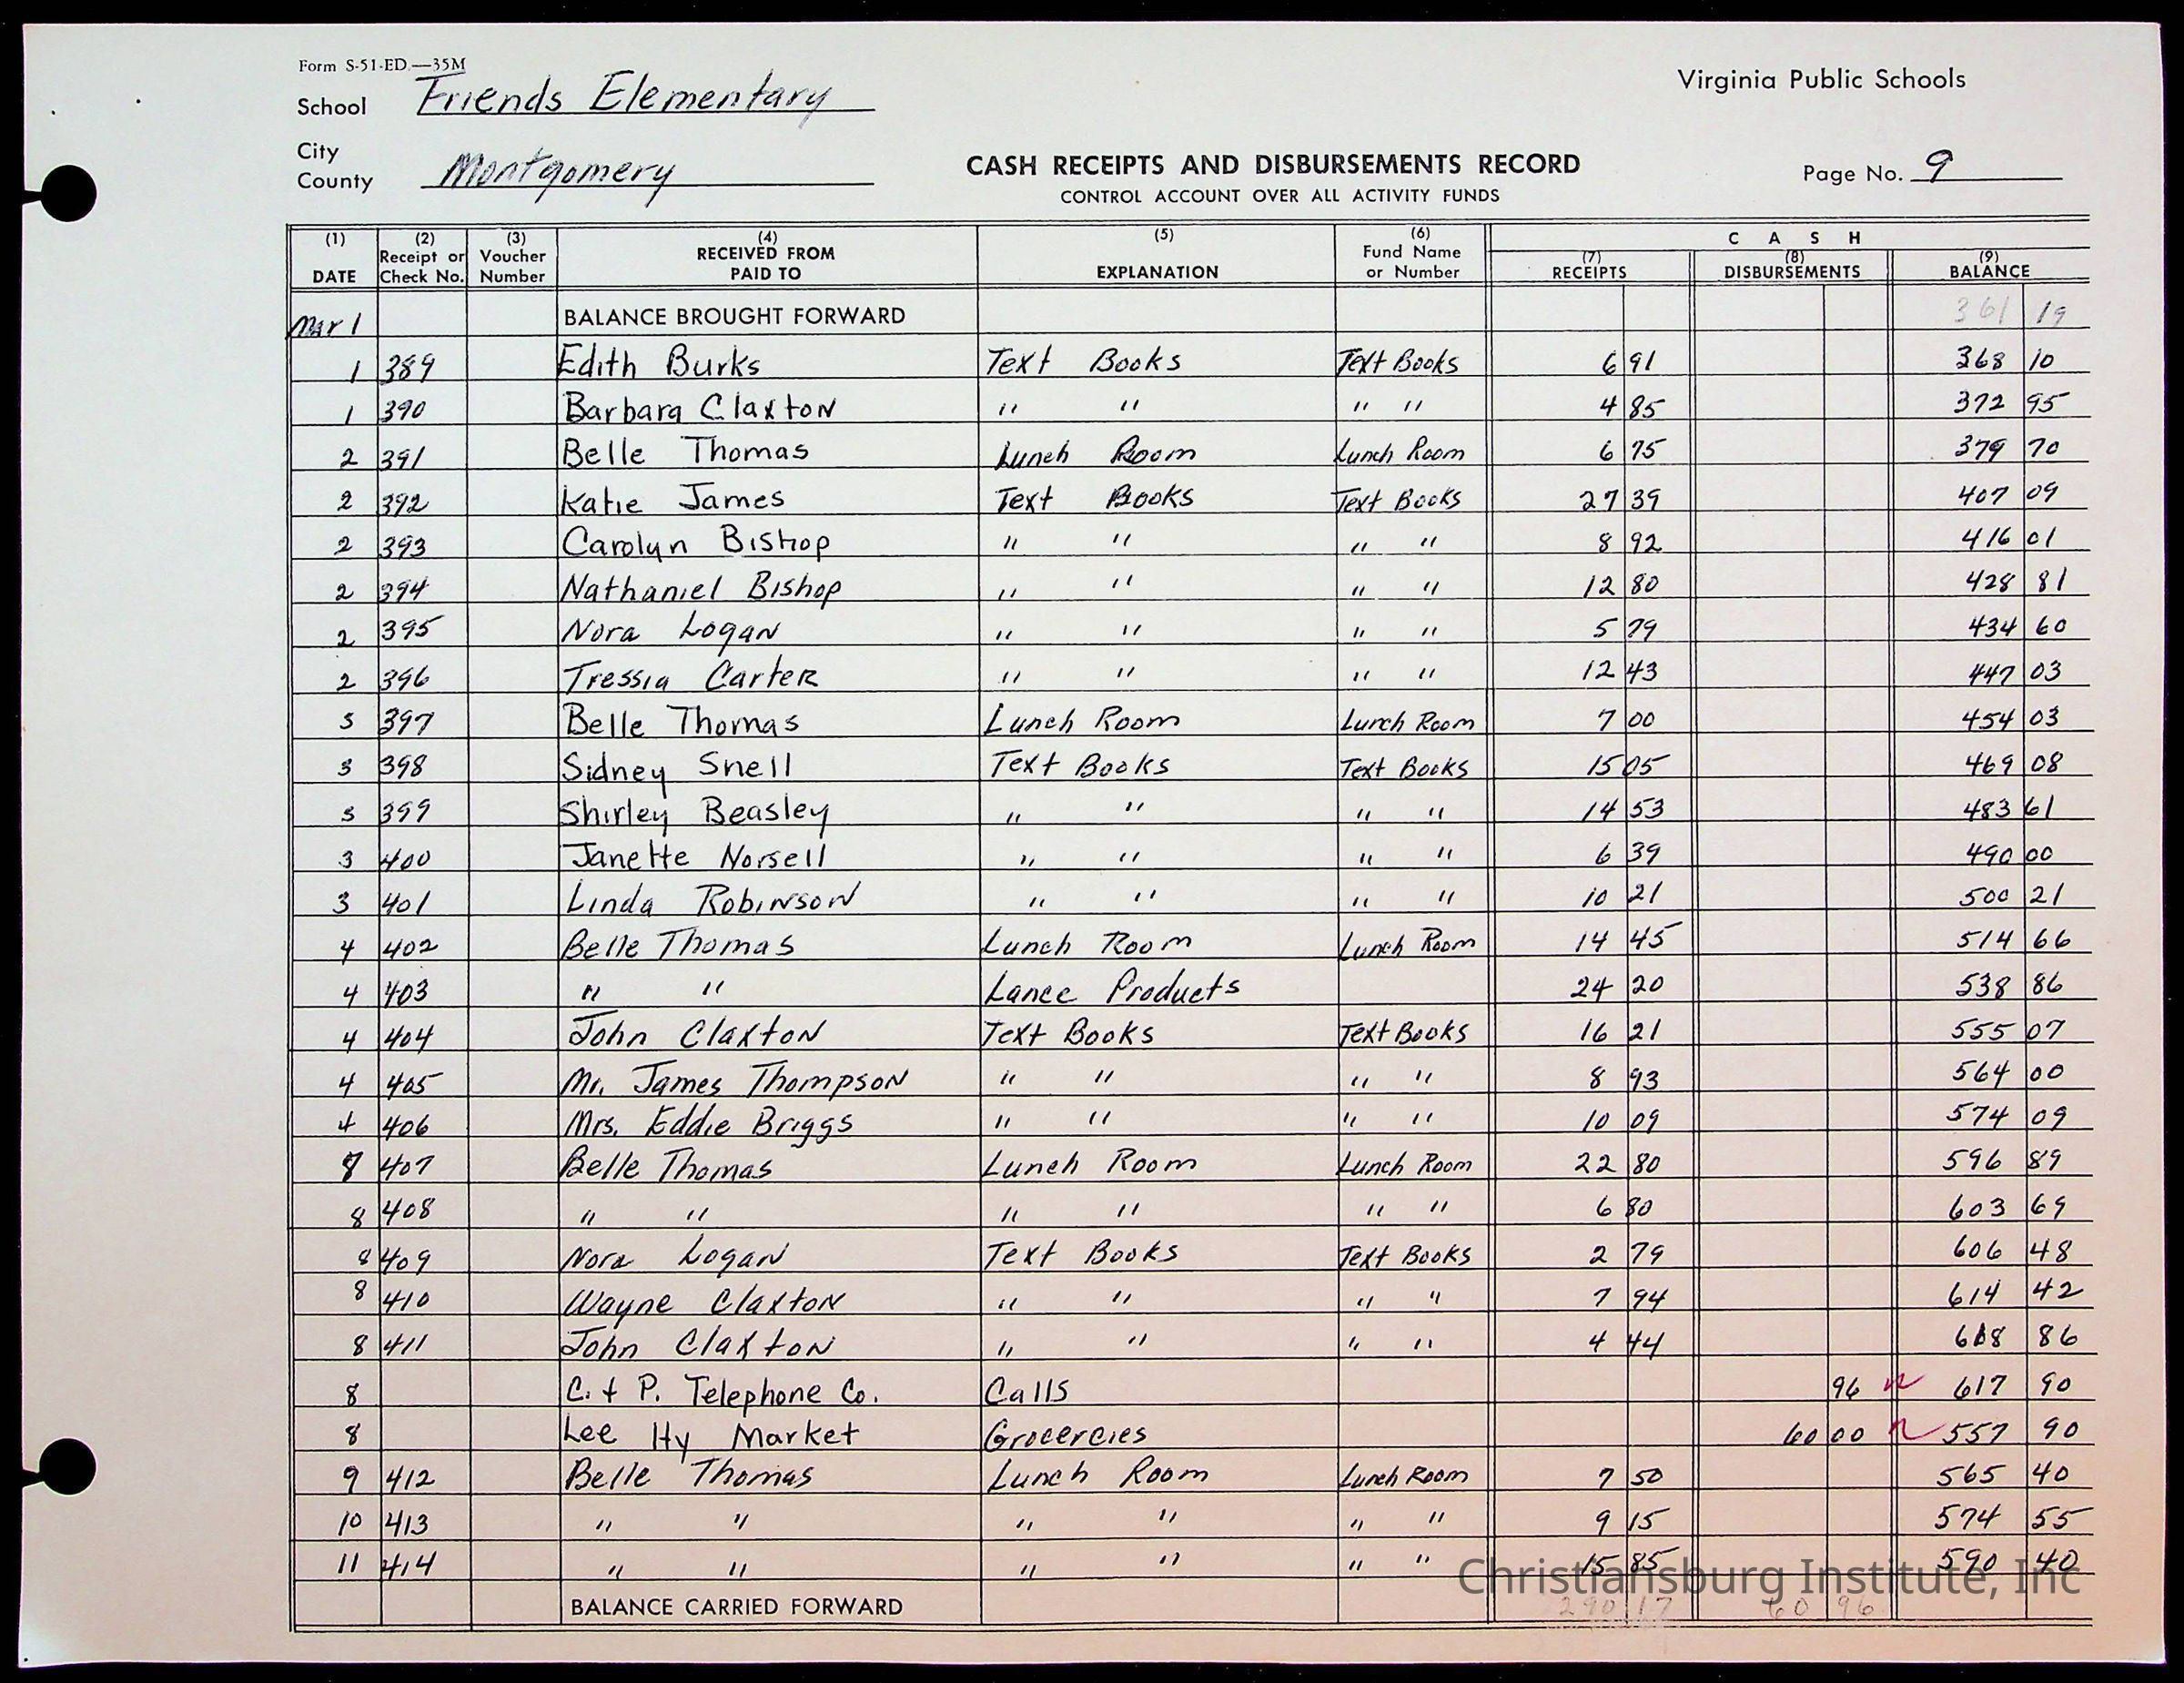 Form S-51-ED.—35M
School Friends Elementary
Virginia Public Schools
City
County Montgomery
CASH RECEIPTS AND DISBURSEMENTS RECORD
CONTROL ACCOUNT OVER ALL ACTIVITY FUNDS
Page No. 9
(1) DATE (2) Receipt or Check No. (3) Voucher Number (4) RECEIVED FROM PAID TO (5) EXPLANATION (6) Fund Name or Number CASH (7) RECEIPTS (8) DISBURSEMENTS (9) BALANCE
Mar 1 BALANCE BROUGHT FORWARD 361 19
1 389 Edith Burks Text Books Text Books 6 91 368 10
1 390 Barbara Claxton " " " " 4 85 372 95
2 391 Belle Thomas Lunch Room Lunch Room 6 75 379 70
2 392 Katie James Text Books Text Books 27 39 407 09
2 393 Carolyn Bishop " " " " 8 92 416 01
2 394 Nathaniel Bishop " " " " 12 80 428 81
2 395 Nora Logan " " " " 5 79 434 60
2 396 Tressia Carter " " " " 12 43 447 03
3 397 Belle Thomas Lunch Room Lunch Room 7 00 454 03
3 398 Sidney Snell Text Books Text Books 15 05 469 08
3 399 Shirley Beasley " " " " 14 53 483 61
3 400 Janette Norsell " " " " 6 39 490 00
3 401 Linda Robinson " " " " 10 21 500 21
4 402 Belle Thomas Lunch Room Lunch Room 14 45 514 66
4 403 " " Lance Products 24 20 538 86
4 404 John Claxton Text Books Text Books 16 21 555 07
4 405 Mr. James Thompson " " " " 8 93 564 00
4 406 Mrs. Eddie Briggs " " " " 10 09 574 09
8 407 Belle Thomas Lunch Room Lunch Room 22 80 596 89
8 408 " " " " " " 6 80 603 69
8 409 Nora Logan Text Books Text Books 2 79 606 48
8 410 Wayne Claxton " " " " 7 94 614 42
8 411 John Claxton " " " " 4 44 618 86
8 C. + P. Telephone Co. Calls 96 617 90
8 Lee Hy Market Grocercies 60 00 557 90
9 412 Belle Thomas Lunch Room Lunch Room 7 50 565 40
10 413 " " " " " " 9 15 574 55
11 414 " " " " " " 15 85 590 40
Christiansburg Institute, Inc
BALANCE CARRIED FORWARD 290 17 60 96